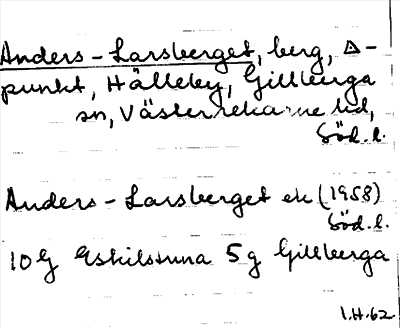 Anders-Larsberget, berg, Δ-
punkt, Hälleby, Gillberga
sn, Västerrekarne hd,
Söd. l.
Anders-Larsberget ek (1958)
Söd. l.
10G Eskilstuna 5g Gillberga
1.H.62